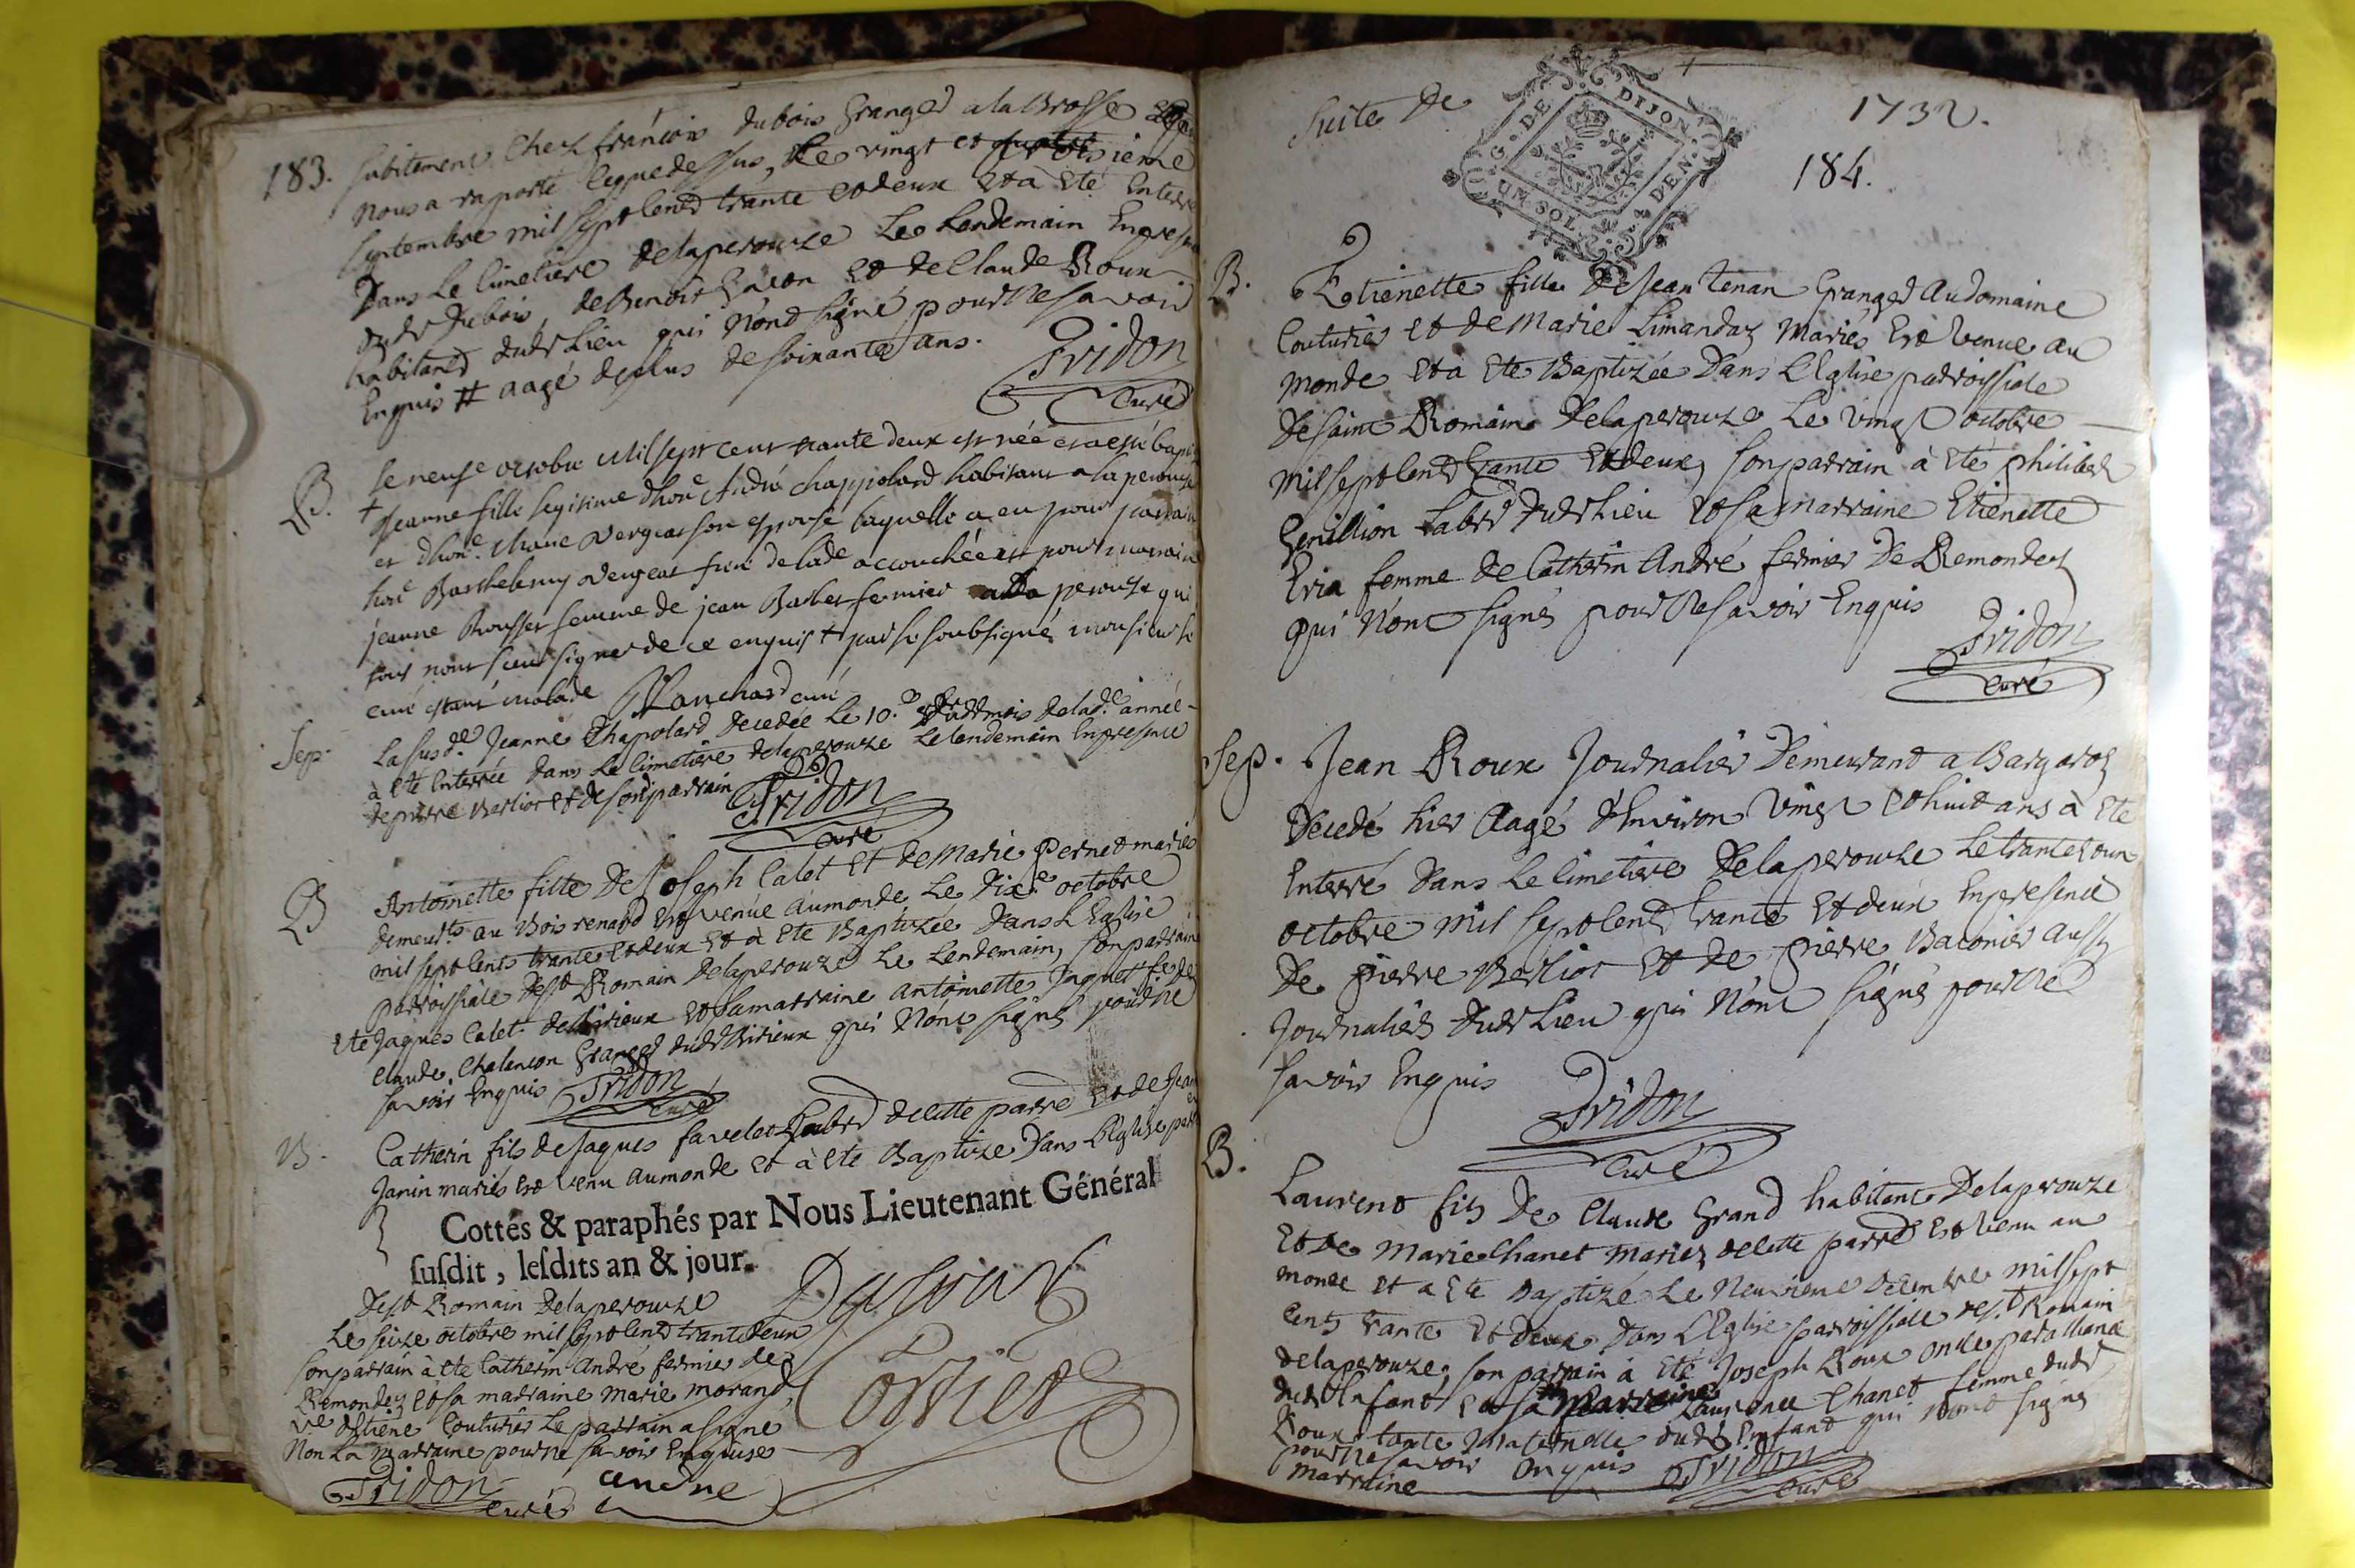 183. subitement chez francois dubois granger a la Brosse
nous a raporté ce que dessus, le vingt et troisieme
septembre mil sept cent trante et deux et à eté enterré
Dans le cimetiere de laperouze le lendemain en presence
dudt dubois, de Benoit et de Claude Roux
habitants dudt lieu qui n'ont signé pour ne savoir
enquis # aagé de plus de soixante ans.
Tridon
curé
B. le neufe octobre mil sept cent trante deux est née et a esté bapt
+ Jeanne fille legitime d'hone André chappolard habitant a la perouse
et d'hone. Marie Vergeat son epouse laquelle a eu pour parrain
hone Barthelemy Vengeat frere de lade accouchée et pour marraine
jeanne Rousset femme de jean Barlet fermier a la perouse qui
tous n'ont sceu signer de ce enquis + par le soubsigné monsieur le
curé etant malade Planchard curé
Sep. La susde. Jeanne Chapolard decedée le 10.e dudt mois de lade. année
à eté enterrée dans le cimetiere de laperouze le lendemain en presence
de pierre Berliot et de son parrain Tridon
curé
B Antoinette fille de Joseph Calet et de Marie pernet mariés
demeurts au Bois renard est venue au monde le dixe octobre
mil sept cents trante et deux et à eté Baptizée dans l'Eglise
parroissiale de st Romain de laperouze le lendemain, son parrain
eté Jaques Calet de Birieux et sa marraine antoinette Jaquet fe de
claude Chalancon granger dudt Birieux qui n'ont signés pour ne
savoir enquis Tridon
curé
B. Catherin fils de Jaques favelet labr de cette parre et de Jean
Janin mariés est venu au monde et à eté Baptizé dans l'Eglise par
Cottés & paraphés par Nous Lieutenant Général
ſuſdit, leſdits an & jour.
de st Romain de laperouze
Le seize octobre mil sept cent trante deux
son parrain à eté Catherin André fermier de
Remondez et sa marraine marie morand
ve d'Etiene Couturier le parrain a signé
Non La marraine pour ne savoir enquise
Tridon
curé andre
Suite de 1732.
G. DE DIJON
UN SOL. DEN.
184.
B. Etienette fille de Jean Tenan Granger au domaine
Couturier et de Marie Limandaz mariés est venue au
monde et à eté Baptizée dans l'Eglise parroissiale
de saint Romain de laperouze le vingt octobre
mil sept cent trante et deux, son parrain à eté philibert
labr dudt lieu et sa marraine Etienette
Eria femme de Catherin André fermier de Remondez
qui n'ont signés pour ne savoir enquis
Tridon
curé
Sep. Jean Roux Journalier demeurant a Bargaroz
decedé hier aagé d'environ vingt et huit ans à eté
enterré dans le cimetiere de laperouze le trante et un
octobre mil sept cent trante et deux en presence
de pierre Berliot et de pierre Batonier aussi
journaliers dudt lieu qui n'ont signés pour ne
savoir enquis
Tridon
curé
B. Laurent fils de Claude Grand habitant de laperouze
et de marie Chanet mariez de cette parre est venu au
monde et a eté Baptizé le neuvieme decembre mil sept
cents trante et deux dans l'Eglise parroissiale de st Romain
de laperouze; son parrain à eté Joseph Roux oncle par alliance
dudt enfant et sa marraine Laurence Chanet femme dudt
Roux tante maternelle dudt Enfant qui n'ont signés
pour ne savoir enquis Tridon
marraine curé